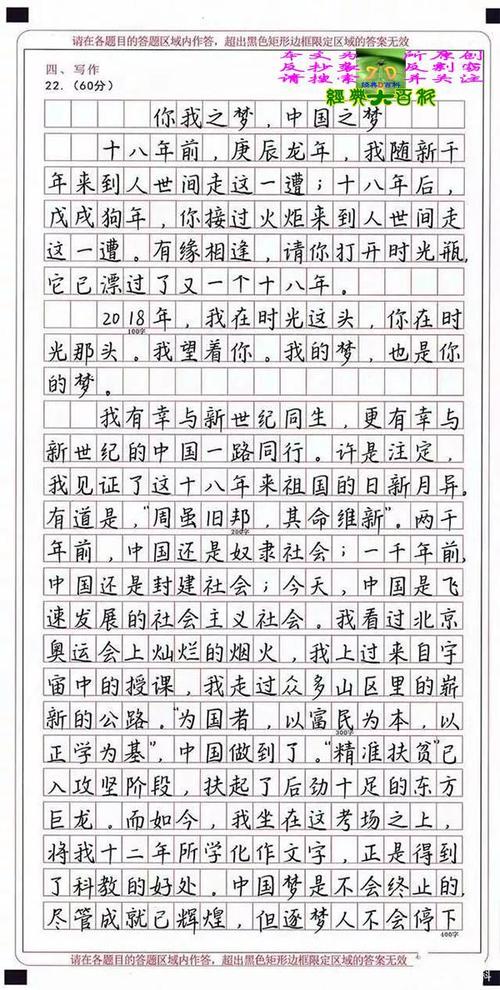 请在各题目的答题区域内作答，超出黑色矩形边框限定区域的答案无效
本文为 所原创
反抄袭 反剽窃
请搜索 并关注
7D
经典D百科
经典大百科
四、写作
22.（60分）
你我之梦，中国之梦
十八年前，庚辰龙年，我随新千
年来到人世间走这一遭；十八年后，
戊戌狗年，你接过火炬来到人世间走
这一遭。有缘相逢，请你打开时光瓶，
它已漂过了又一个十八年。
2018年，我在时光这头，你在时
100字
光那头。我望着你。我的梦，也是你
的梦。
我有幸与新世纪同生，更有幸与
新世纪的中国一路同行。许是注定，
我见证了这十八年来祖国的日新月异。
有道是，“周虽旧邦，其命维新”。两千
200字
年前，中国还是奴隶社会；一千年前，
中国还是封建社会；今天，中国是飞
速发展的社会主义社会。我看过北京
奥运会上灿烂的烟火，我上过来自宇
宙中的授课，我走过众多山区里的崭
新的公路。“为国者，以富民为本，以
300字
正学为基”，中国做到了。“精准扶贫”已
入攻坚阶段，扶起了后劲十足的东方
巨龙。而如今，我坐在这考场之上，
将我十二年所学化作文字，正是得到
了科教的好处。中国梦是不会终止的，
尽管成就已辉煌，但逐梦人不会停下
400字
请在各题目的答题区域内作答，超出黑色矩形边框限定区域的答案无效